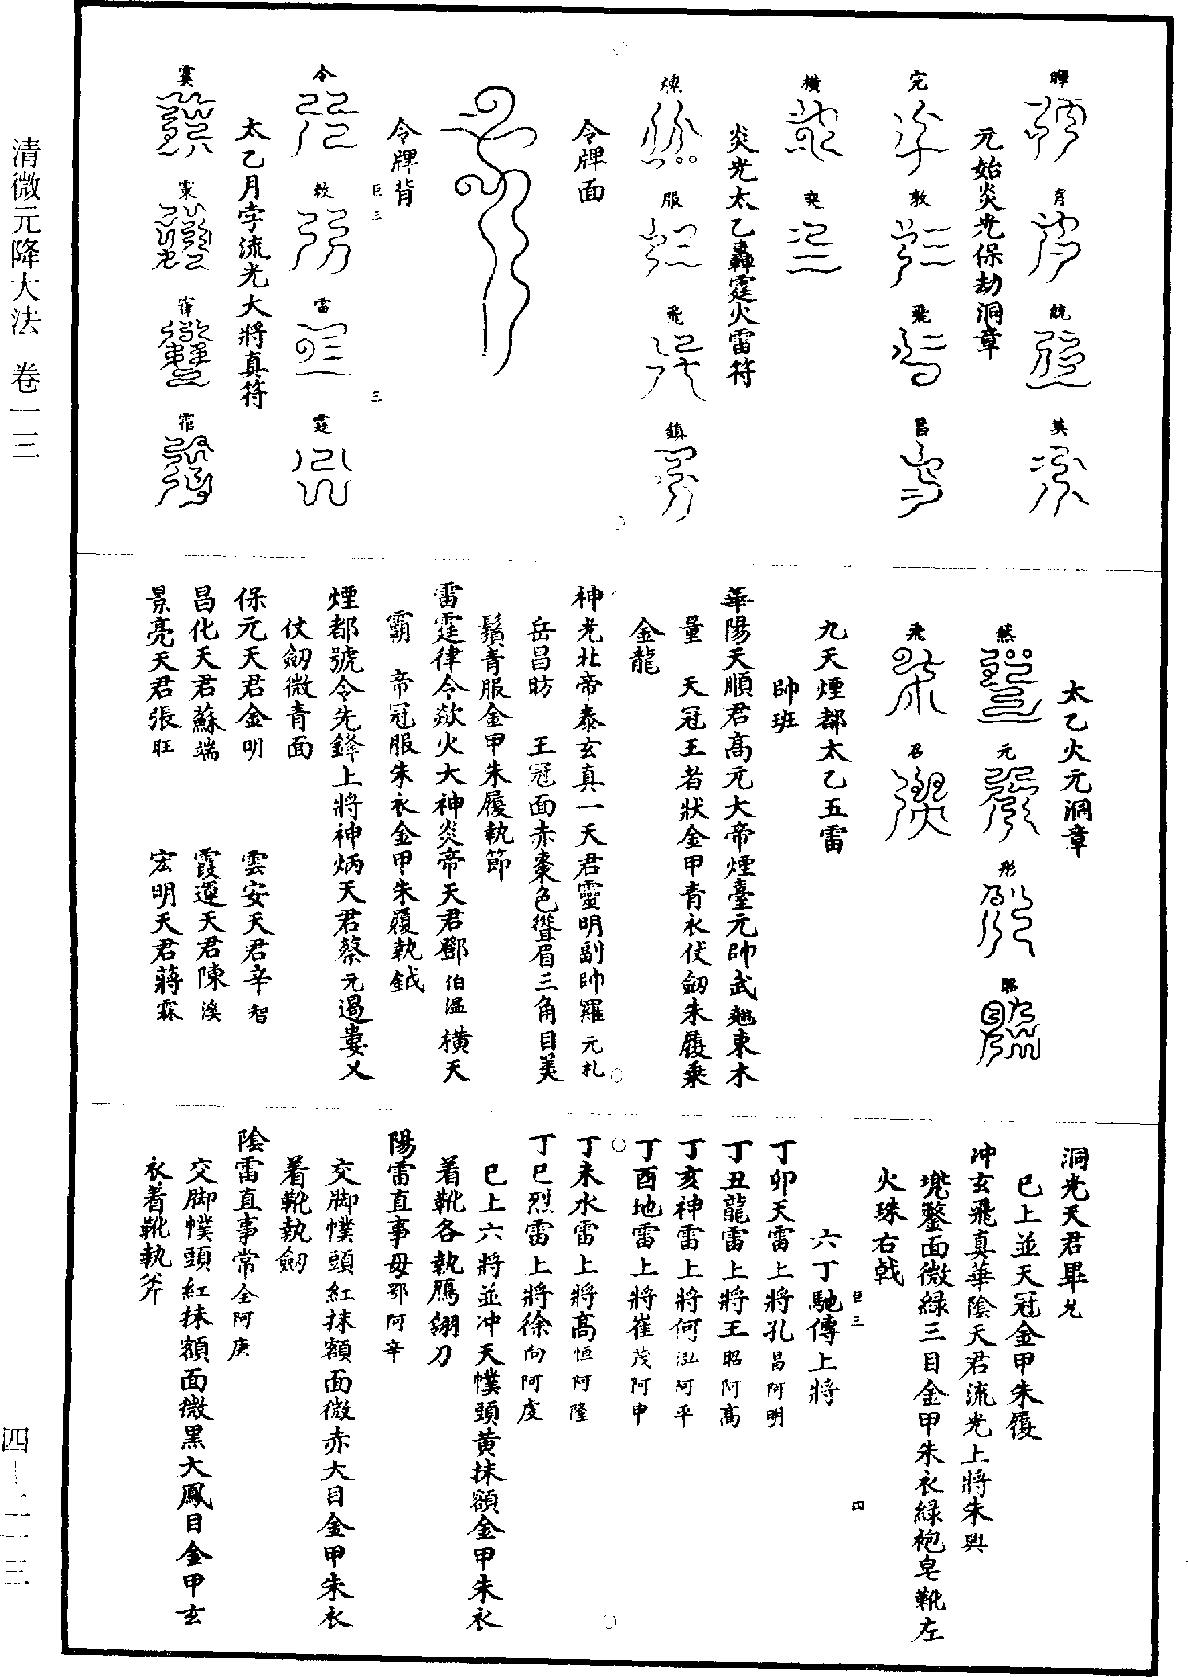 清微元降大法 卷一三
育
統
英
元始炎光保劫洞章
完
敦
飛
昌
橫
奭
炎光太乙轟霆火雷符
煉
服
飛
鎮
令牌面
令牌背
巨三
三
令
敕
雷
霆
太乙月孛流光大將真符
太乙火元洞章
元
彤
飛
召
九天煙都太乙五雷
帥班
華陽天順君高元大帝煙臺元帥武延東木
量 天冠王者狀金甲青衣伏劒朱履乘
金龍
神光北帝泰玄真一天君靈明副帥羅元札
岳昌昉 王冠面赤棗色聳眉三角目美
鬚青服金甲朱履執節
雷霆律令歘火大神炎帝天君鄧伯溫橫天
霸 帝冠服朱衣金甲朱履執鉞
煙都號令先鋒上將神炳天君蔡元過婁乂
仗劒微青面
保元天君金明 雲安天君辛智
昌化天君蘇端 霞運天君陳溪
景亮天君張旺 宏明天君蔣霖
洞光天君畢兊
已上並天冠金甲朱履
冲玄飛真華陰天君流光上將朱興
兜鍪面微緑三目金甲朱衣緑袍皂靴左
火珠右戟
巨三
四
六丁馳傳上將
丁卯天雷上將孔昌阿明
丁丑龍雷上將王昭阿高
丁亥神雷上將何泓阿平
丁酉地雷上將崔茂阿申
丁未水雷上將高恒阿隆
丁巳烈雷上將徐向阿虔
已上六將並冲天幞頭黄抹額金甲朱衣
着靴各執鴈翎刀
陽雷直事毋鄂阿辛
交脚幞頭紅抹額面微赤大目金甲朱衣
着靴執劒
陰雷直事常全阿庚
交脚幞頭紅抹額面微黑大鳳目金甲玄
衣着靴執斧
四—二一三